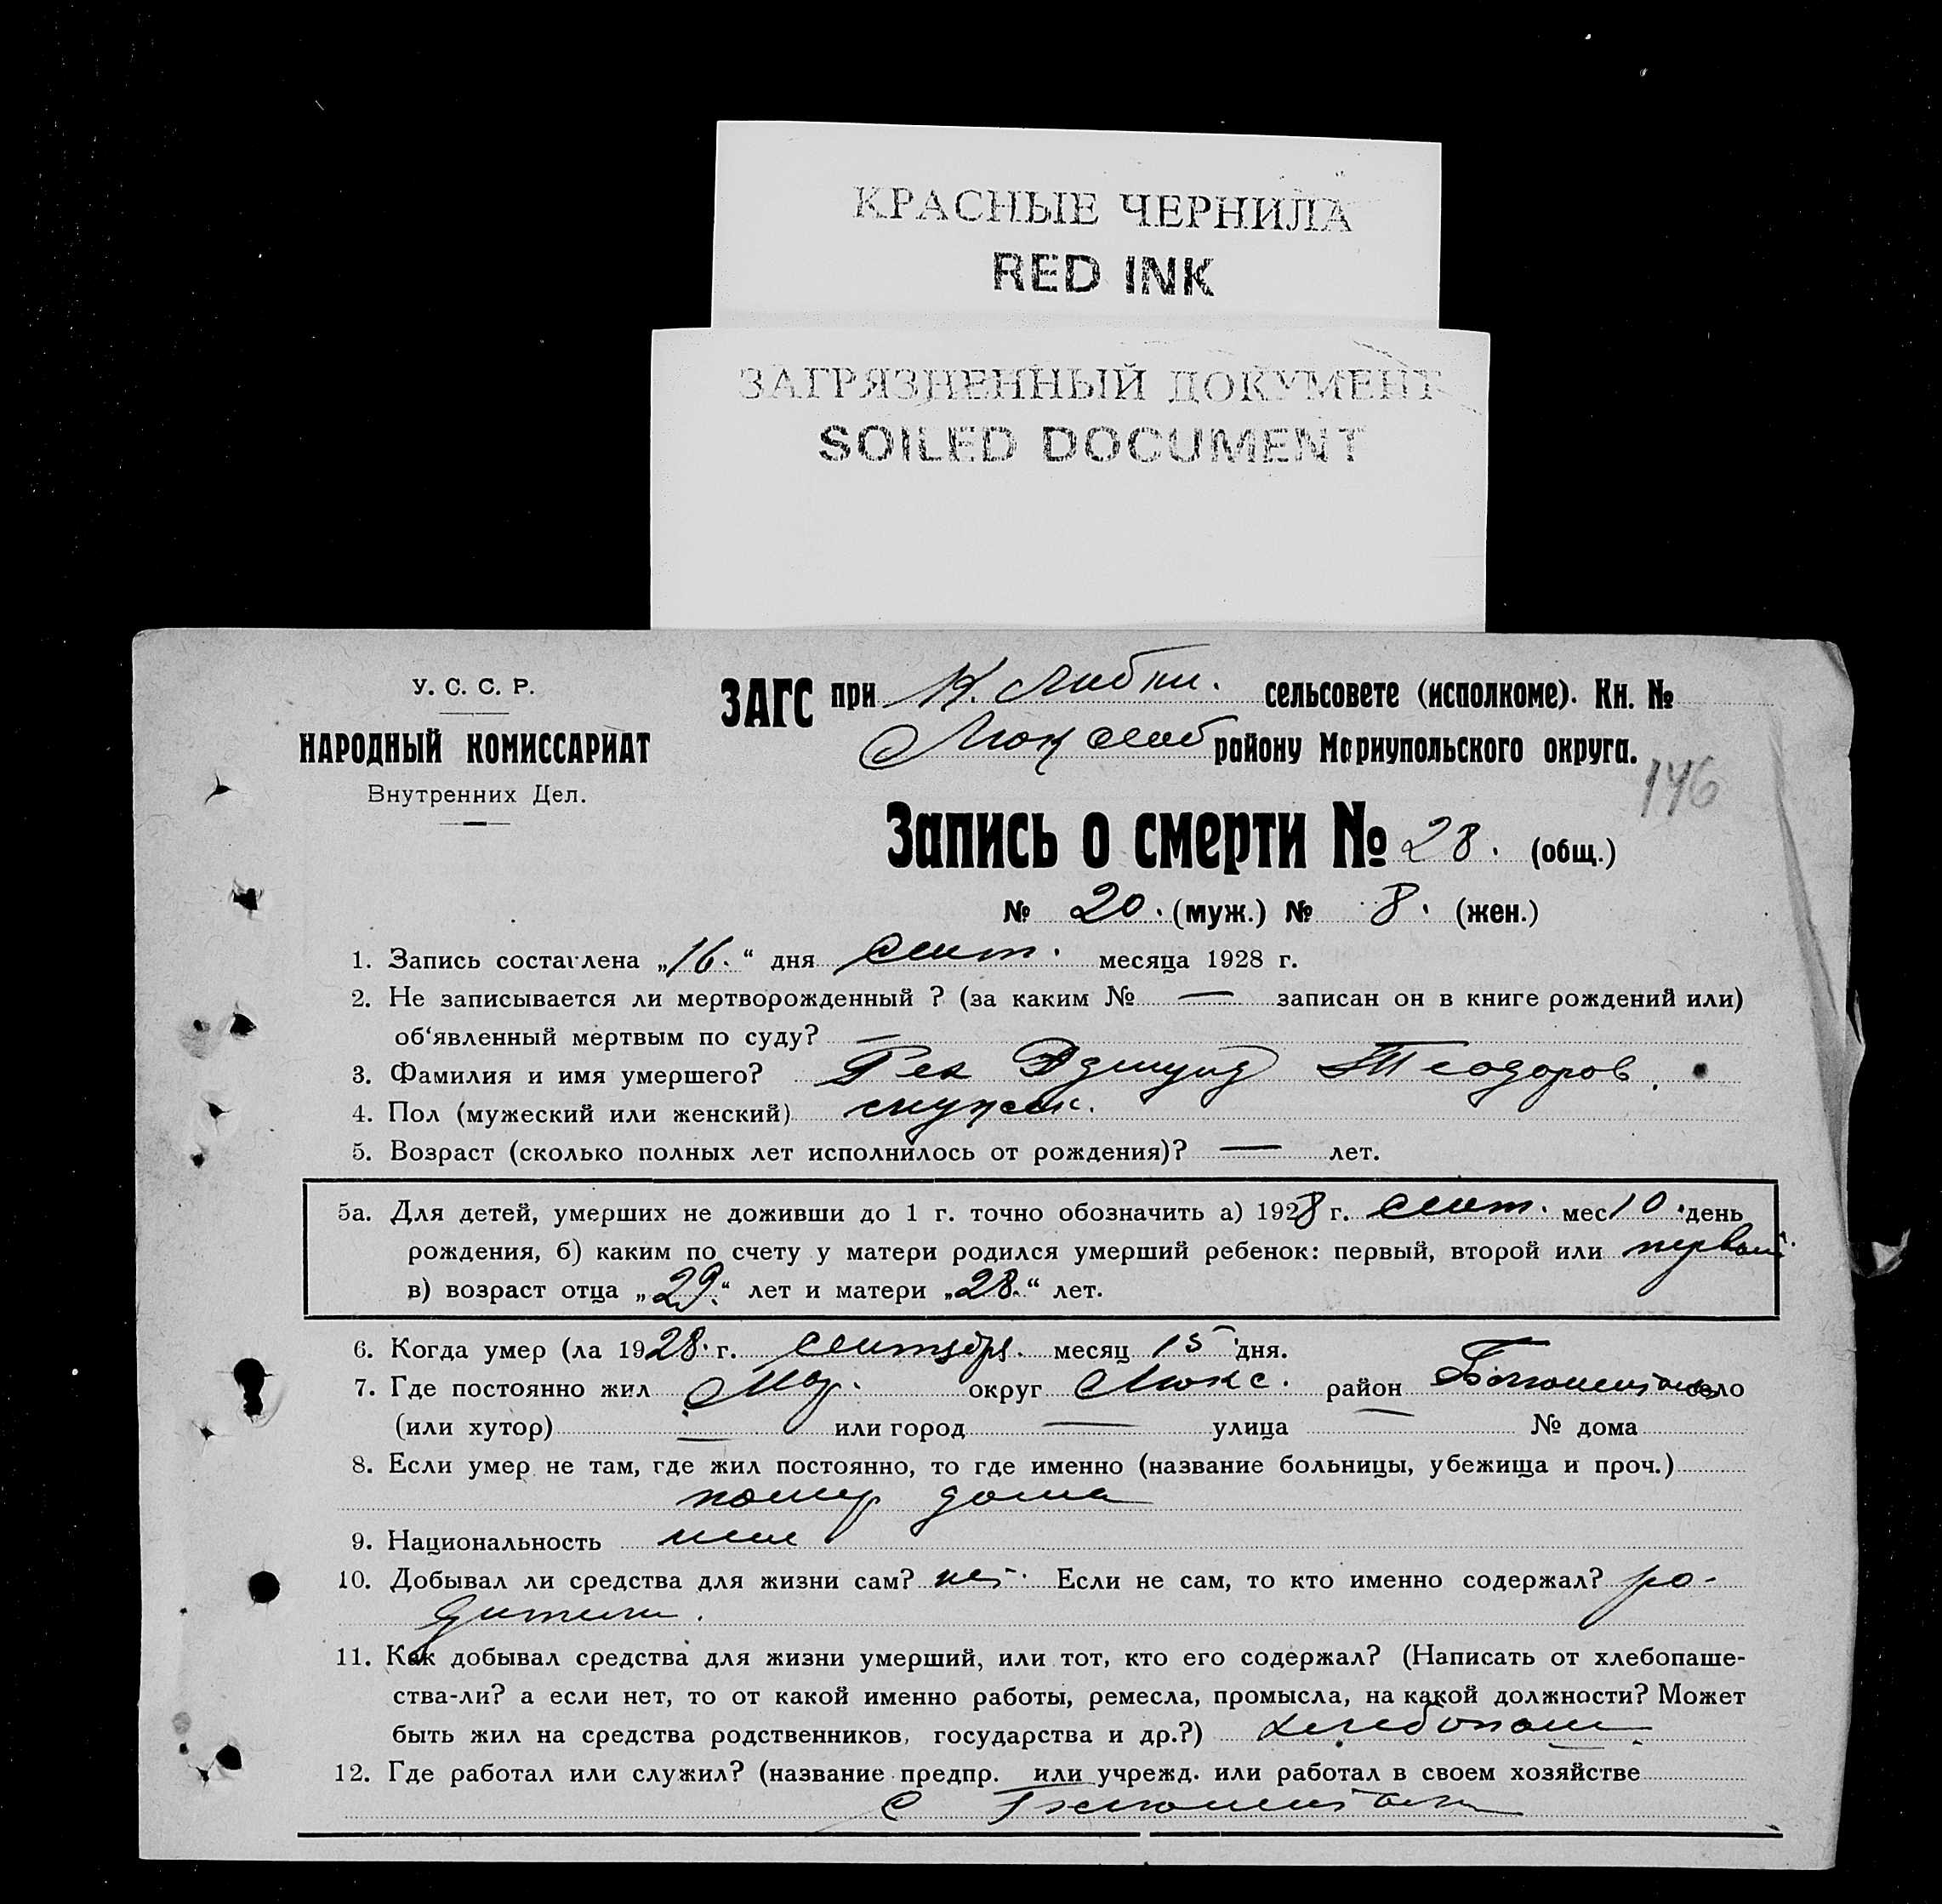 КРАСНЫЕ ЧЕРНИЛА
RED INK
ЗАГРЯЗНЕННЫЙ ДОКУМЕНТ
SOILED DOCUMENT
У. С. С. Р.
НАРОДНЫЙ КОМИССАРИАТ
Внутренних Дел.
ЗАГС при сельсовете (исполкоме). Кн. №
району Мариупольского округа.
146
Запись о смерти № 28. (общ.)
№ 20. (муж.) № 8. (жен.)
1. Запись составлена „16.“ дня сент. месяца 1928 г.
2. Не записывается ли мертворожденный ? (за каким № — записан он в книге рождений или)
об‘явленный мертвым по суду? —
3. Фамилия и имя умершего? Эдмунд Теодоров.
4. Пол (мужеский или женский) мужск.
5. Возраст (сколько полных лет исполнилось от рождения)? — лет.
5а. Для детей, умерших не доживши до 1 г. точно обозначить а) 1928 г. сент. мес 10. день
рождения, б) каким по счету у матери родился умерший ребенок: первый, второй или первый.
в) возраст отца „29.“ лет и матери „28.“ лет.
6. Когда умер (ла 1928. г. сентября. месяц 15 дня.
7. Где постоянно жил Мар. округ Люкс. район село
(или хутор) — или город — улица — № дома
8. Если умер не там, где жил постоянно, то где именно (название больницы, убежища и проч.)
помер дома
9. Национальность нем
10. Добывал ли средства для жизни сам? нет. Если не сам, то кто именно содержал? ро-
дители.
11. Как добывал средства для жизни умерший, или тот, кто его содержал? (Написать от хлебопаше-
ства-ли? а если нет, то от какой именно работы, ремесла, промысла, на какой должности? Может
быть жил на средства родственников, государства и др.?) хлебопаш
12. Где работал или служил? (название предпр. или учрежд. или работал в своем хозяйстве
с